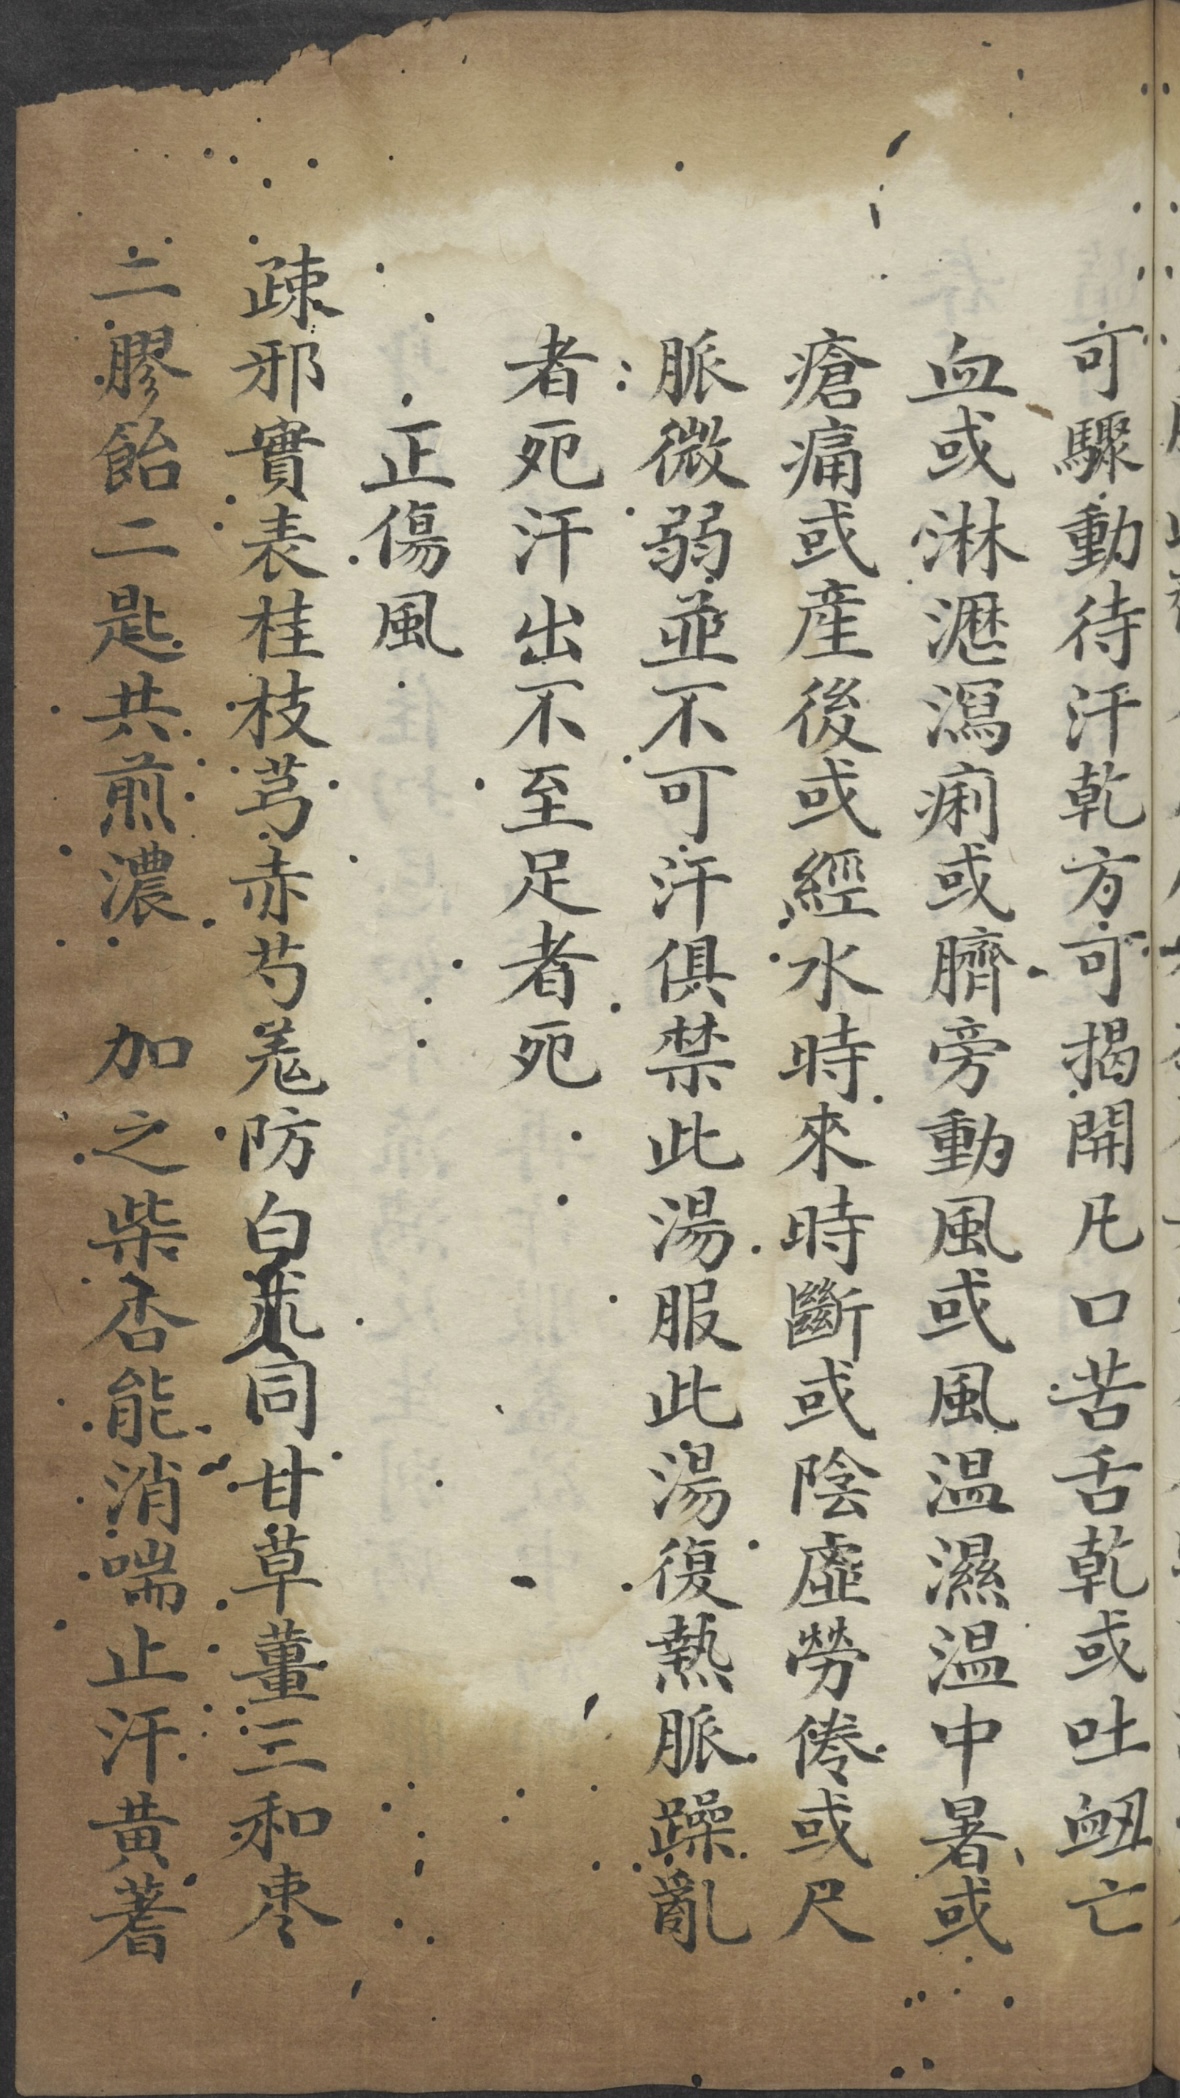 可驟動待汗乾方可揭開凡口苦舌乾或吐衄亡
血或淋瀝瀉痢或臍旁動風或風温濕温中暑或
瘡痛或産後或經水時來時斷或陰虛勞倦或尺
脈微弱並不可汗俱禁此湯服此湯復熱脈躁亂
者死汗出不至足者死
正傷風
疎邪實表桂枝芎赤芍羌防白朮同甘草薑三和枣
二膠飴二匙共煎濃 加之柴杏能消喘止汗黄蓍